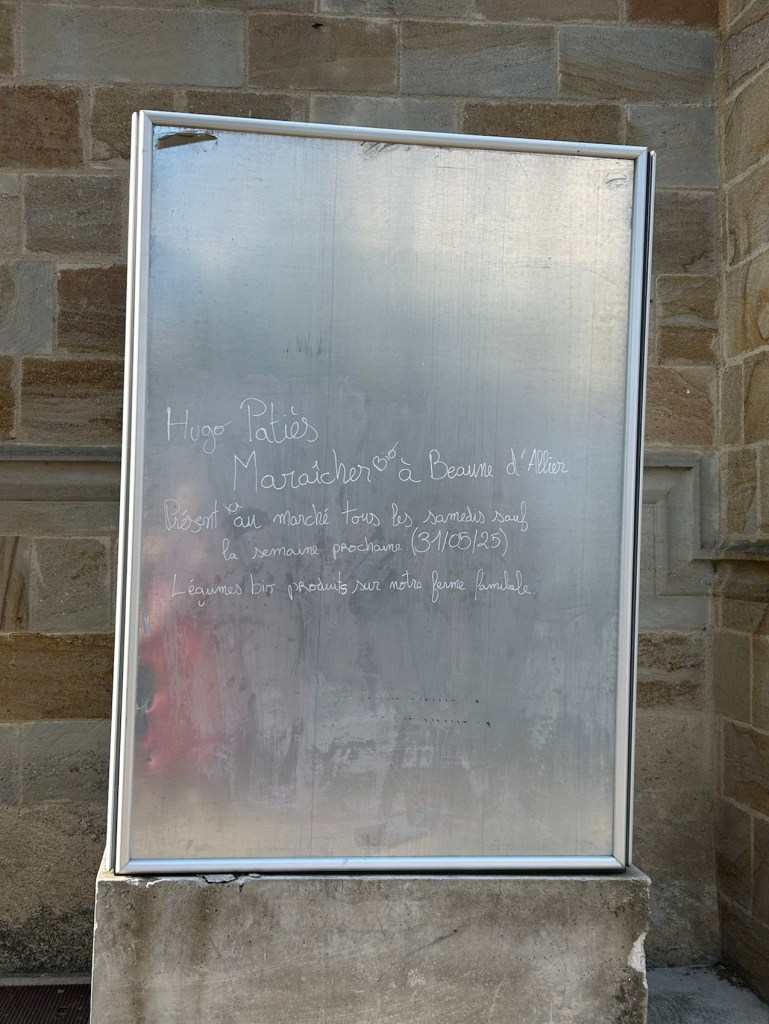 Hugo Patiès
Maraîcher Bio à Beaune d'Allier
Présent ici au marché tous les samedis sauf
la semaine prochaine (31/05/25)
Légumes bio produits sur notre ferme familiale.